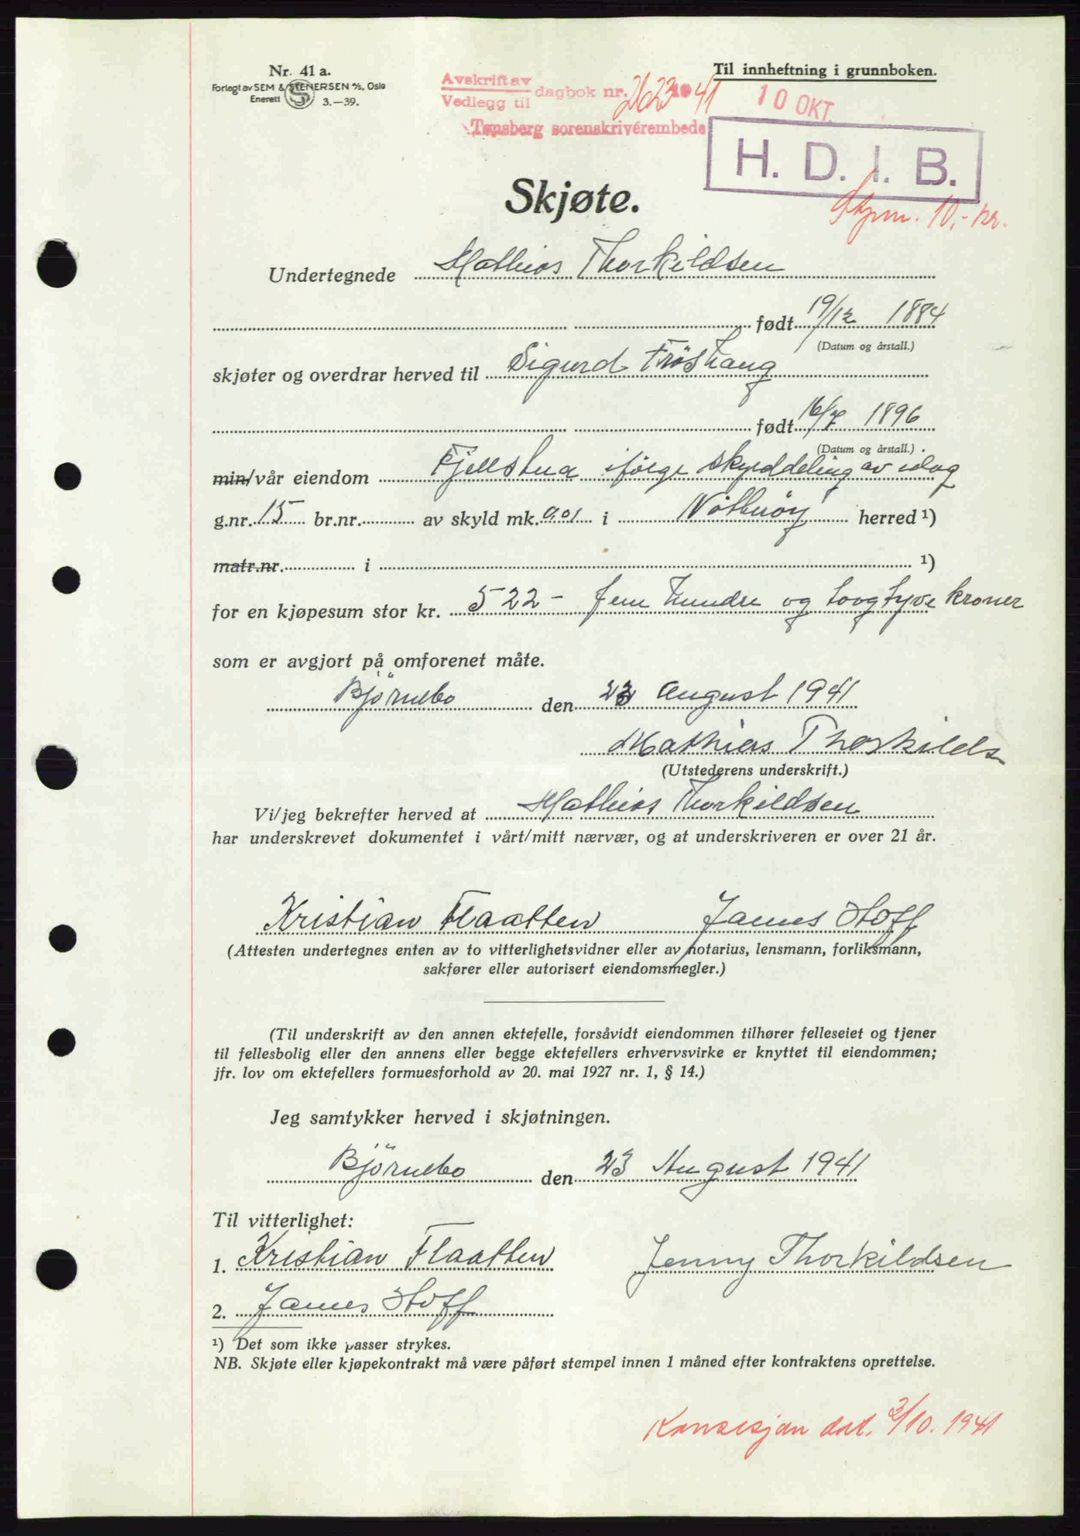 Nr. 41 a.
Forlegt av SEM & STENERSEN A/S, Oslo
Enerett 3.—39.
Avskrift av
Vedlegg til dagbok nr. 2623 1941
Tønsberg sorenskriverembede
Til innheftning i grunnboken.
10 OKT.
H. D. I. B.
Stpm. 10,- kr.
Skjøte.
Undertegnede Mathias Thorkildsen
født 19/12 1884
(Datum og årstall.)
skjøter og overdrar herved til Sigurd Frøshaug
født 16/7 1896
(Datum og årstall.)
min/vår eiendom Fjellstua ifølge skylddeling av idag
g.nr. 15 br.nr. av skyld mk. 0.01 i Nøtterøy herred ¹)
matr.nr. i ¹)
for en kjøpesum stor kr. 522- fem hundre og toogtyve kroner
som er avgjort på omforenet måte.
Bjørnebo den 23 August 1941
Mathias Thorkilds
(Utstederens underskrift.)
Vi/jeg bekrefter herved at Mathias Thorkildsen
har underskrevet dokumentet i vårt/mitt nærvær, og at underskriveren er over 21 år.
Kristian Flaatten James Hoff
(Attesten undertegnes enten av to vitterlighetsvidner eller av notarius, lensmann, forliksmann,
sakfører eller autorisert eiendomsmegler.)
(Til underskrift av den annen ektefelle, forsåvidt eiendommen tilhører felleseiet og tjener
til fellesbolig eller den annens eller begge ektefellers erhvervsvirke er knyttet til eiendommen;
jfr. lov om ektefellers formuesforhold av 20. mai 1927 nr. 1, § 14.)
Jeg samtykker herved i skjøtningen.
Bjørnebo den 23 August 1941
Til vitterlighet:
1. Kristian Flaatten Jenny Thorkildsen
2. James Hoff
¹) Det som ikke passer strykes.
NB. Skjøte eller kjøpekontrakt må være påført stempel innen 1 måned efter kontraktens oprettelse.
Konsesjon dat. 2/10. 1941